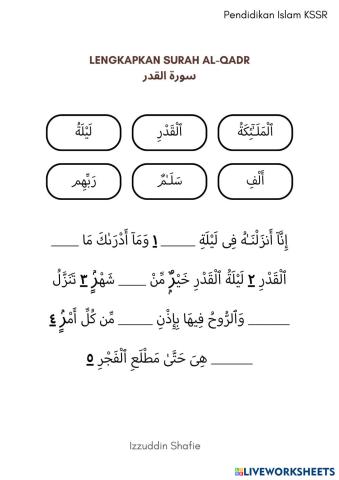 Pendidikan Islam KSSR
LENGKAPKAN SURAH AL-QADR
سورة القدر
ٱلْمَلَـٰٓئِكَةُ ٱلْقَدْرِ لَيْلَةُ
أَلْفِ سَلَـٰمٌ رَبِّهِم
إِنَّآ أَنزَلْنَـٰهُ فِى لَيْلَةِ _____ ١ وَمَآ أَدْرَىٰكَ مَا ____
ٱلْقَدْرِ ٢ لَيْلَةُ ٱلْقَدْرِ خَيْرٌ مِّنْ ____ شَهْرٍ ٣ تَنَزَّلُ
______ وَٱلرُّوحُ فِيهَا بِإِذْنِ _____ مِّن كُلِّ أَمْرٍ ٤
______ هِىَ حَتَّىٰ مَطْلَعِ ٱلْفَجْرِ ٥
Izzuddin Shafie
LIVEWORKSHEETS